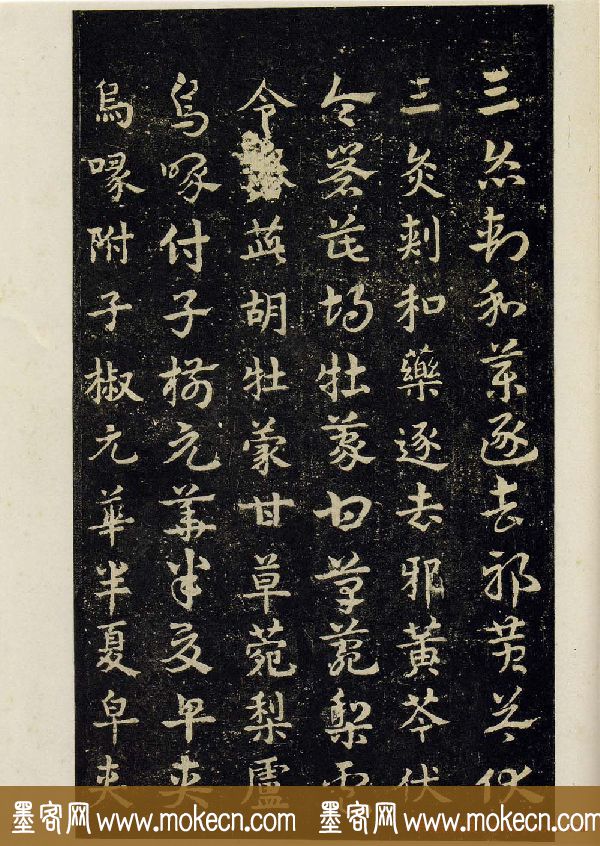 三灸刺和藥逐去邪黃芩伏
三灸刺和藥逐去邪黃芩伏
令礜茈胡牡蒙甘草菀梨盧
令茈胡牡蒙甘草菀梨盧
烏喙付子椒元華半夏皁夾
烏喙附子椒元華半夏皁夾
墨客网 www.mokecn.com 墨客网 www.mokecn.com